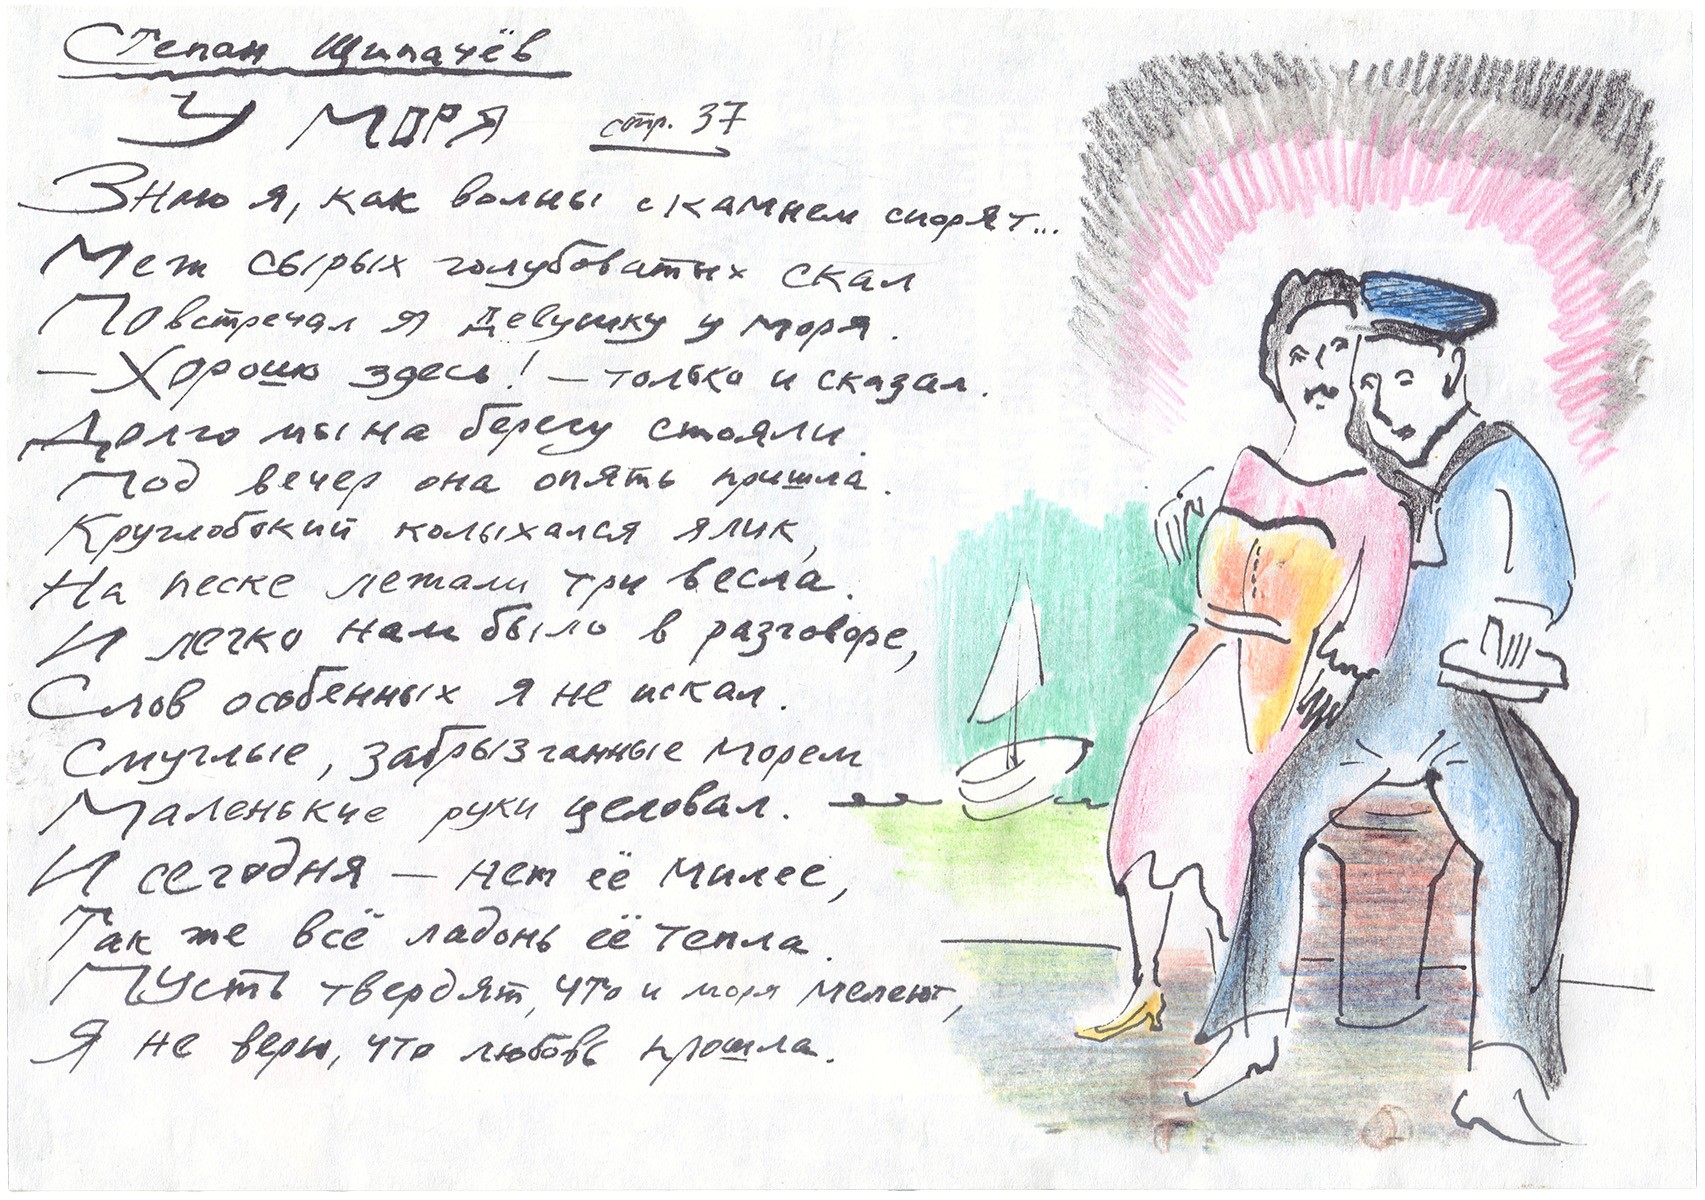 Степан Щипачёв
У МОРЯ стр. 37
Знаю я, как волны с камнем спорят...
Меж сырых голубоватых скал
Повстречал я девушку у моря.
— Хорошо здесь! — только и сказал.
Долго мы на берегу стояли.
Под вечер она опять пришла.
Круглобокий колыхался ялик,
На песке лежали три весла.
И легко нам было в разговоре,
Слов особенных я не искал.
Смуглые, забрызганные морем
Маленькие руки целовал.
И сегодня — нет её милее,
Так же всё ладонь её тепла.
Пусть твердят, что и моря мелеют,
Я не верю, что любовь прошла.